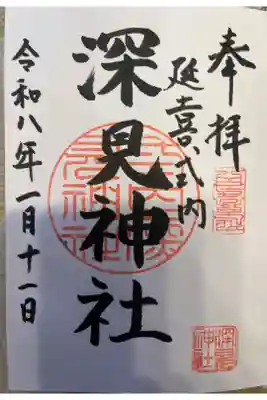 奉拝
延喜式内
深見神社
令和八年一月十一日
深見
神社